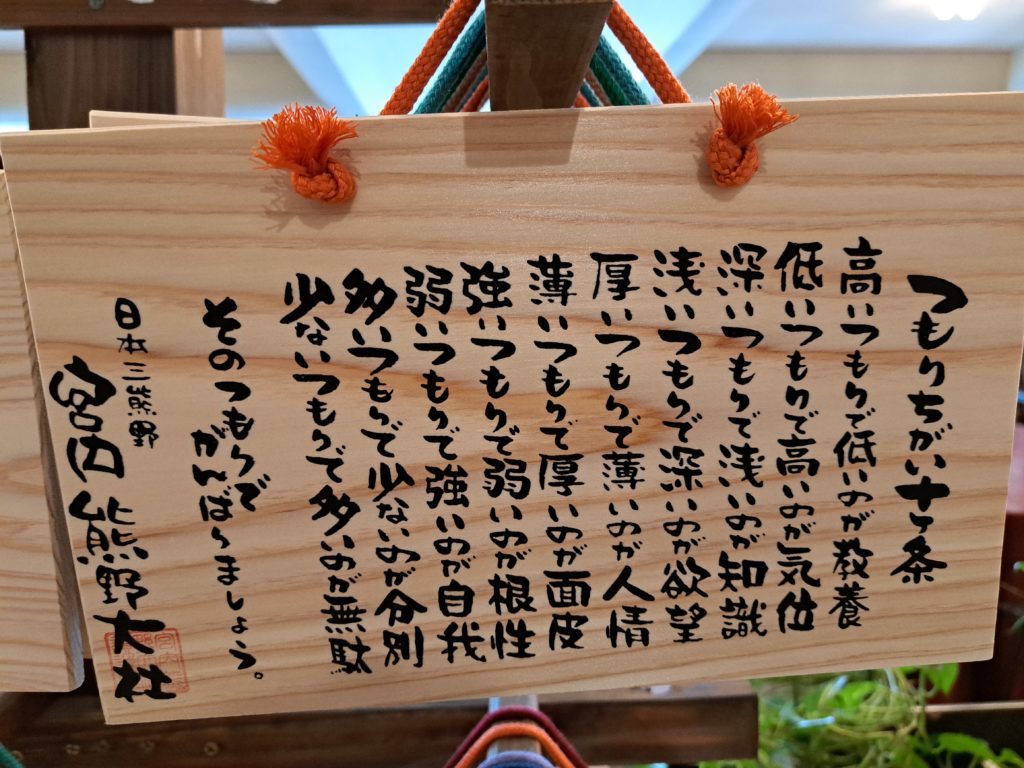 つもりちがい十ヶ条
高いつもりで低いのが教養
低いつもりで高いのが気位
深いつもりで浅いのが知識
浅いつもりで深いのが欲望
厚いつもりで薄いのが人情
薄いつもりで厚いのが面皮
強いつもりで弱いのが根性
弱いつもりで強いのが自我
多いつもりで少ないのが分別
少ないつもりで多いのが無駄
そのつもりで
がんばりましょう。
日本三熊野
宮内熊野大社